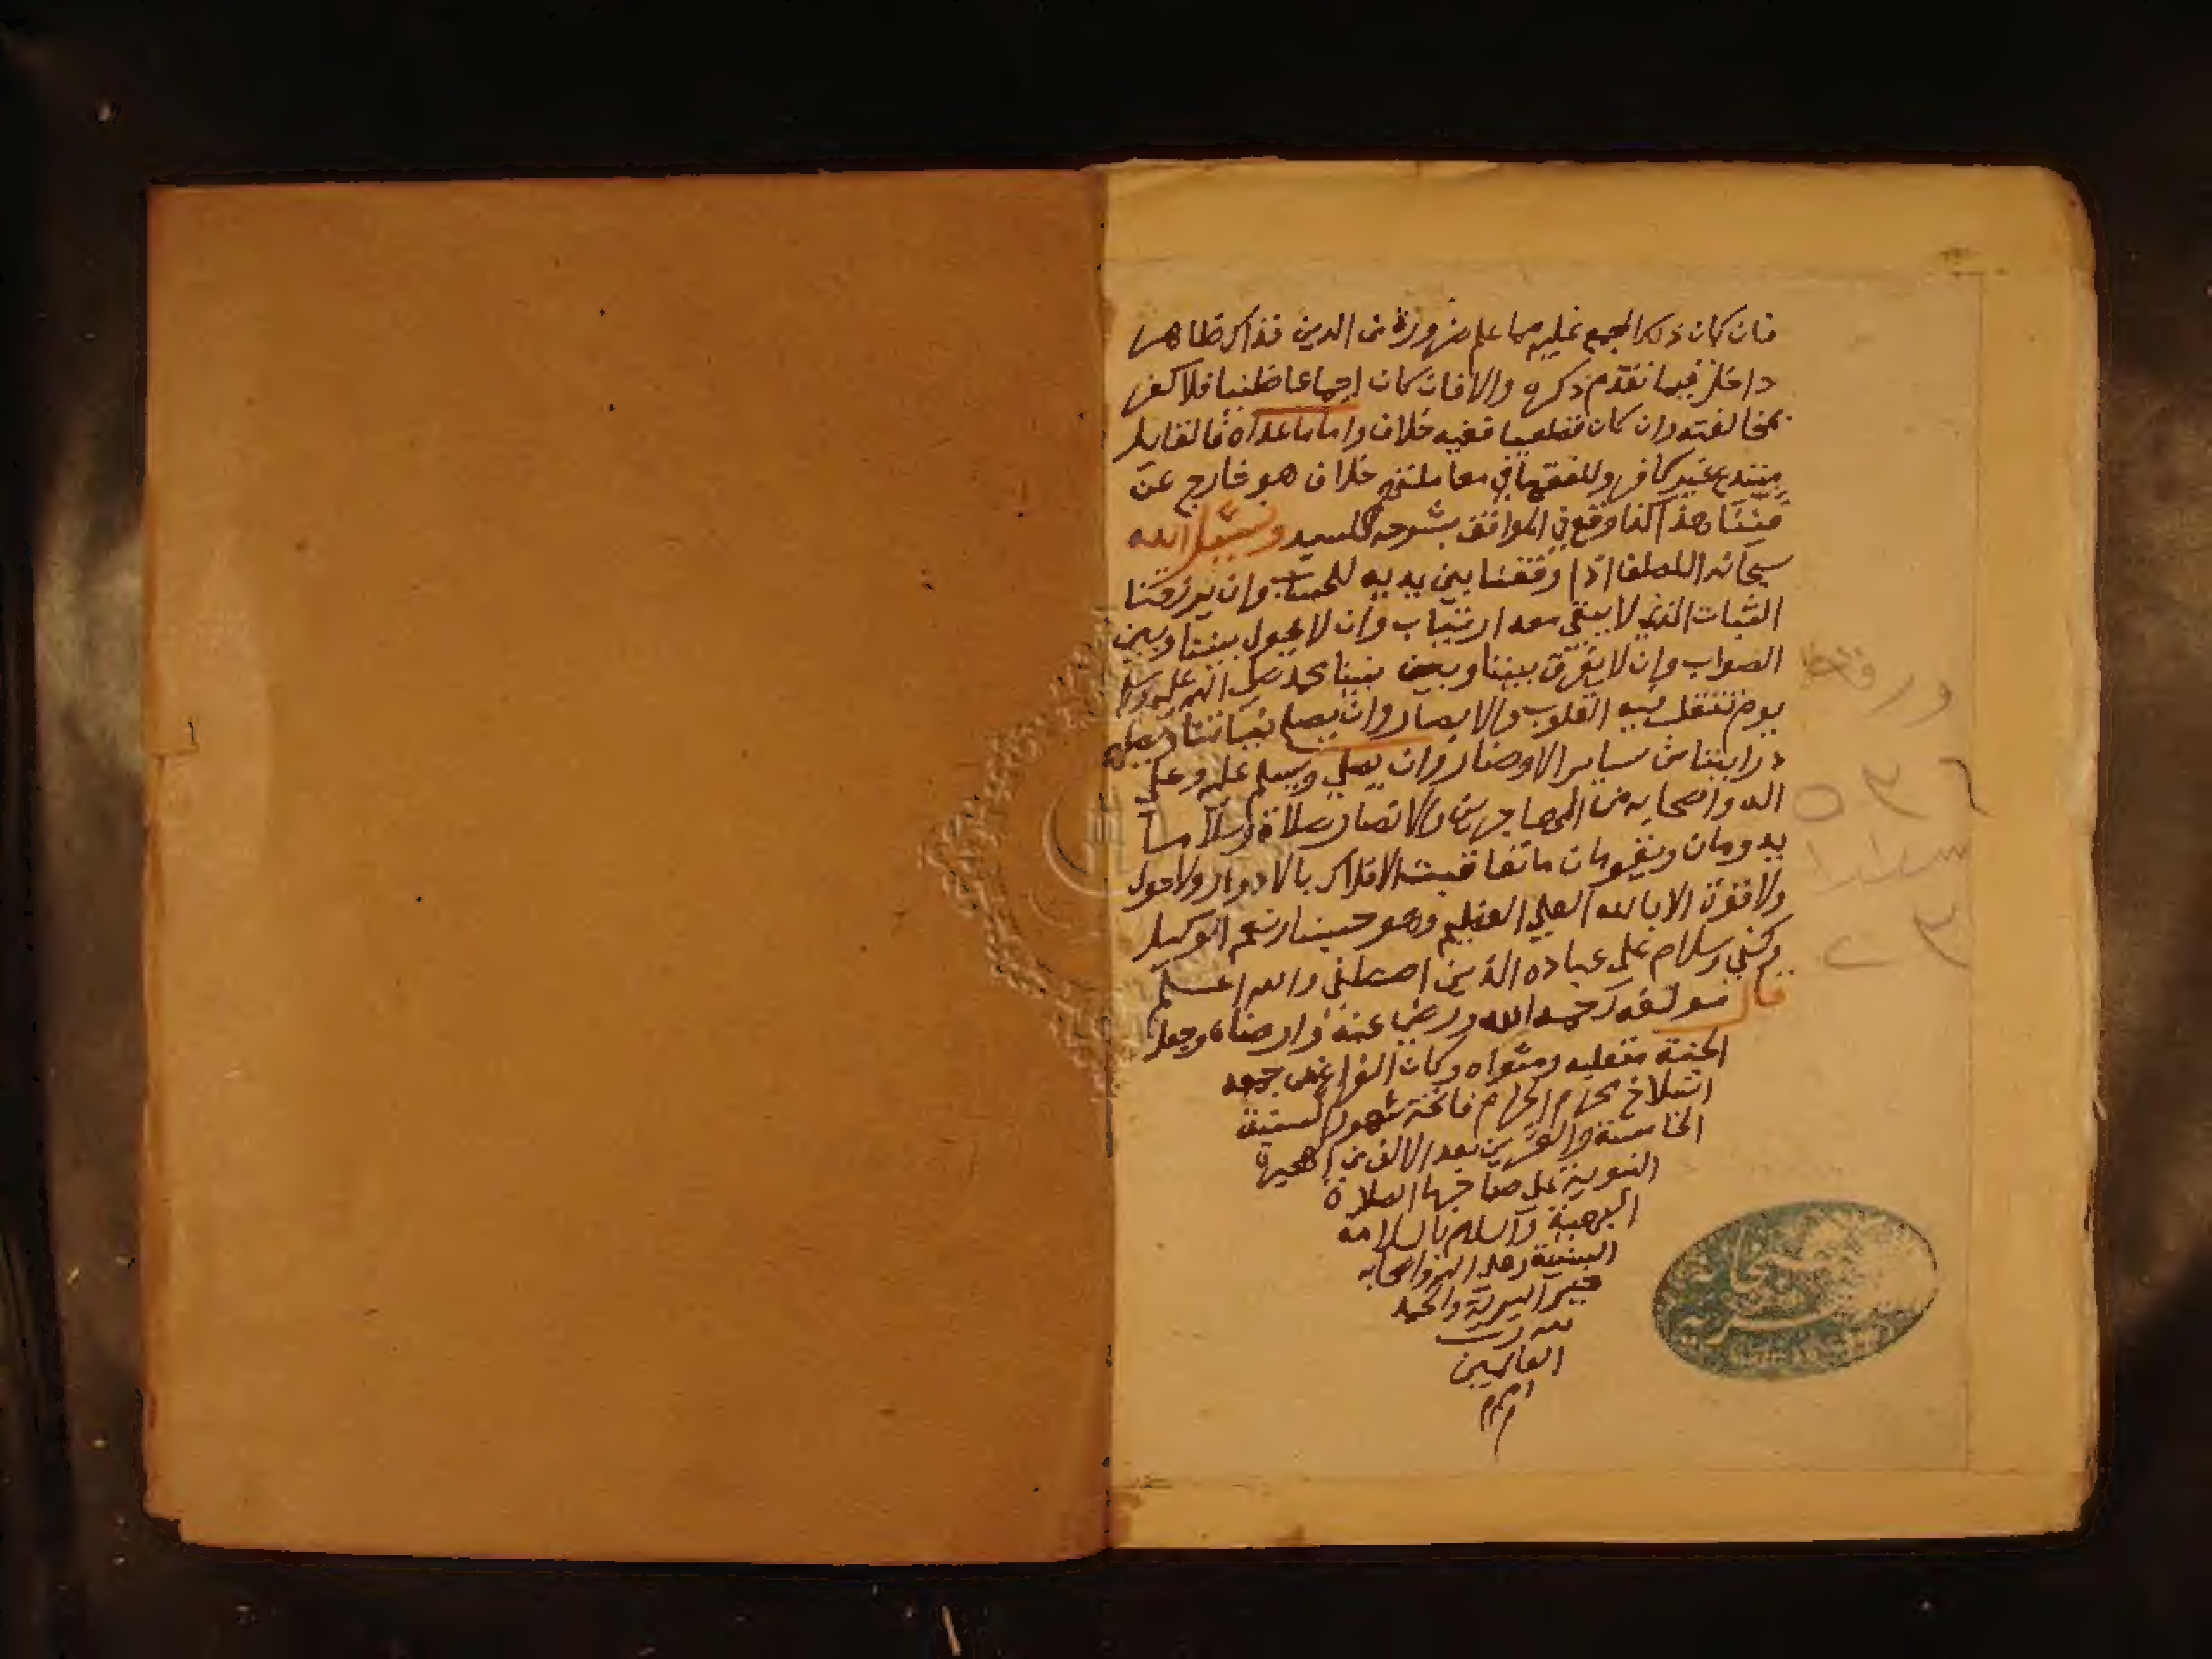 فان كان ذلك المجمع عليه مما علم ضرورة من الدين فذاك ظاهر
داخل فيما تقدم ذكره والا فان كان اجماعا ظنيا فلا كفر
بمخالفته وان كان قطعيا ففيه خلاف واما ما عداه فالقايل
مبتدع غير كافر وللفقها في معاملتهم خلاف هو خارج عن
فننا هذا كذا وقع في المواقف بشرحه للسيد ونسئل الله
سبحانه اللطف اذا وقفنا بين يديه للحساب وان يرزقنا
الثبات الذي لا يبقى معه ارتياب وان لا يحول بيننا وبين
الصواب وان لا يفرق بيننا وبين نبينا محمد صلى الله عليه وسلم
يوم تتقلب فيه القلوب والابصار وان يصلح نياتنا
درايتنا من ساير الاوضار وان يصلي ويسلم عليه وعلى
اله واصحابه من المهاجرين والانصار صلاة وسلاما
يدومان ويقومان ما تعاقبت الافلاك بالادوار ولا حول
ولا قوة الا بالله العلي العظيم وهو حسبنا ونعم الوكيل
وكفى وسلام على عباده الذين اصطفى والله اعلم
قال مولفه رحمه الله ورضى عنه وارضاه وجعل
الجنة متقلبه ومثواه وكان الفراغ من جمعه
انسلاخ محرم الحرام فاتحة شهور السنة
الخامسة والعشرين بعد الالف من الهجرة
النبوية على صاحبها الصلاة
البهية والسلم بالسلامة
السنية وعلى اله واصحابه
خير البرية والحمد
لله رب
العالمين
ورقه
٥٣٦
سطرا
٢٣